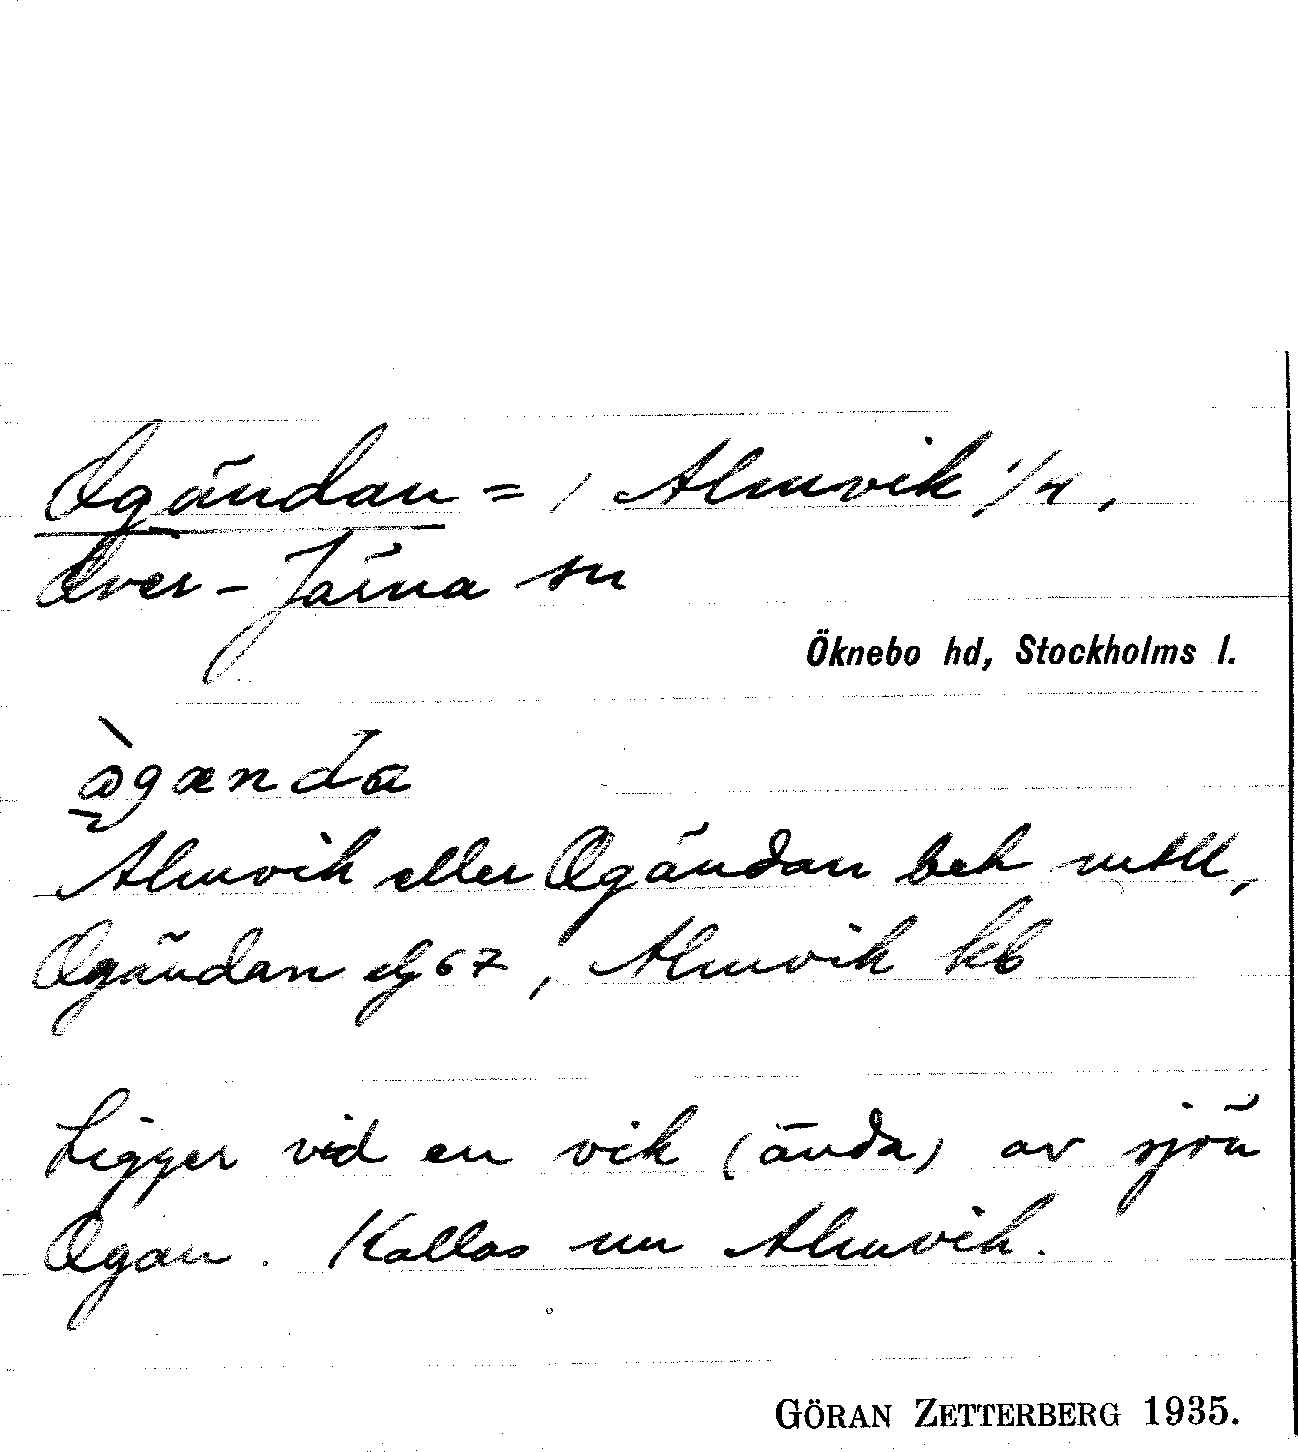 Ogändan = 1 Almvik 1/4,
Över-Järna sn
Öknebo hd, Stockholms l.
Almvik eller Ogändan bek mtll,
Ogändan dj 67, Almvik kb
Ligger vid en vik (ända) av sjön
Ogan. Kallas nu Almvik.
GÖRAN ZETTERBERG 1935.